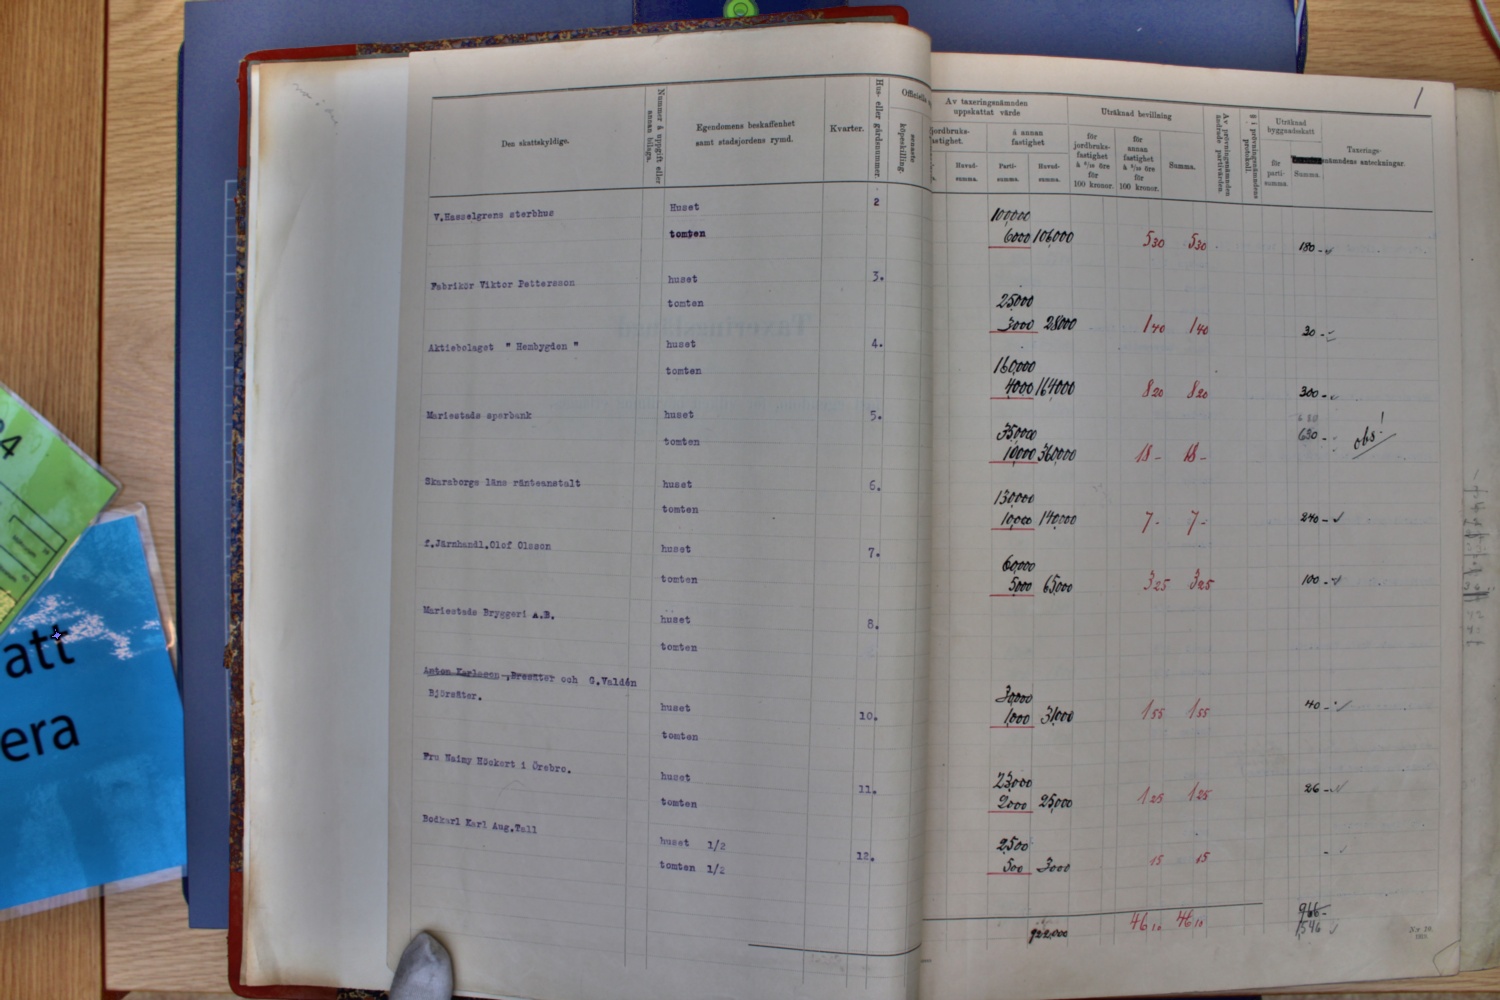 1
Den skattskyldige.
Nummer å uppgift eller annan bilaga.
Egendomens beskaffenhet
samt stadsjordens rymd.
Kvarter.
Hus- eller gårdsnummer.
senaste köpeskilling.
Av taxeringsnämnden
uppskattat värde
jordbruks-
fastighet.
å annan
fastighet
Huvud-
summa.
Parti-
summa.
Huvud-
summa.
Uträknad bevillning
för
jordbruks-
fastighet
à 6/10 öre
för
100 kronor.
för
annan
fastighet
à 5/10 öre
för
100 kronor.
Summa.
Av prövningsnämnden ändrade partivärden.
§ i prövningsnämndens protokoll.
Uträknad
byggnadsskatt
för
parti-
summa.
Summa.
Taxerings-
nämndens anteckningar.
V.Hasselgrens sterbhus Huset 2 100,000
tomten 6000 106,000 5 30 5 30 180 -
Fabrikör Viktor Pettersson huset 3. 25,000
tomten 3000 28,000 1 40 1 40 30 -
Aktiebolaget " Hembygden " huset 4. 160,000
tomten 4000 164,000 8 20 8 20 300 -
Mariestads sparbank huset 5. 680 -
tomten 10,000 360,000 18 - 18 - obs!
Skaraborgs läns ränteanstalt huset 6. 130,000
tomten 10,000 140,000 7 - 7 - 240 -
f.Järnhandl.Olof Olsson huset 7. 60,000
tomten 5,000 65,000 3 25 3 25 100 -
Mariestads Bryggeri A.B. huset 8.
tomten
Anton Karlsson ,Bresäter och G.Valdén
Björsäter. huset 10. 30,000
tomten 1,000 31,000 1 55 1 55 40 -
Fru Naimy Höckert i Örebro. huset 11. 23,000
tomten 2000 25,000 1 25 1 25 26 -
Bodkarl Karl Aug.Tall huset 1/2 12. 2,500
tomten 1/2 500 3000 15 15
922,000 46 10 46 10 966 -
1,546
24
att
era